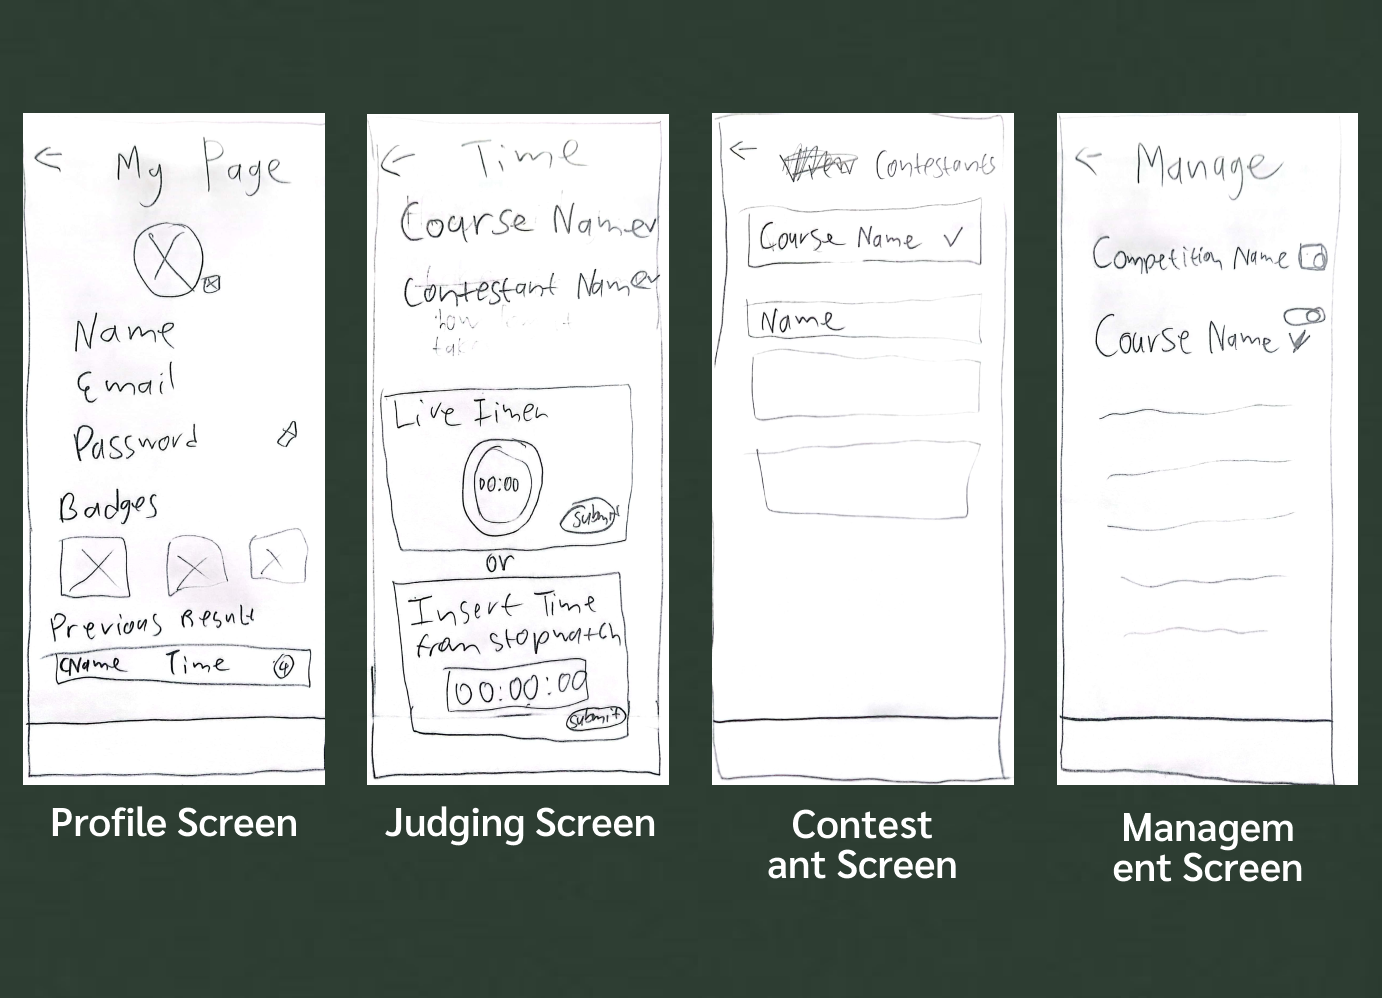 My Page
Name
Email
Password
Badges
Previous Result
CName Time 4
Profile Screen
Time
Course Name
Contestant Name
Live Timer
00:00
Submit
or
Insert Time
from stopwatch
00:00:00
Submit
Judging Screen
Contestants
Course Name
Name
Contest
ant Screen
Manage
Competition Name
Course Name
Managem
ent Screen